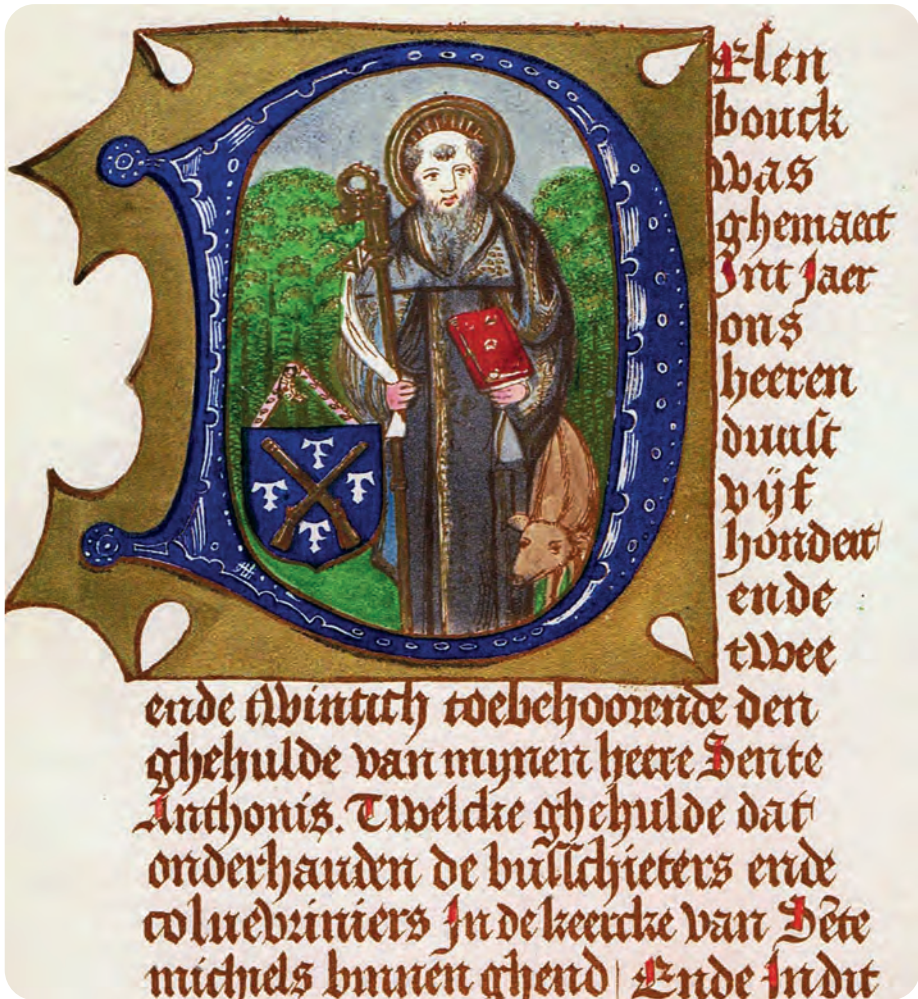 DEsen
bouck
was
ghemaect
Int Jaer
ons
heeren
duust
vijf
hondert
ende
twee
ende twintich toebehoorende den
ghehulde van mijnen heere Sente
Anthonis. Twelcke ghehulde dat
onderhauden de busschieters ende
coluevriniers In de keercke van Sēte
michiels binnen ghend | Ende In dit